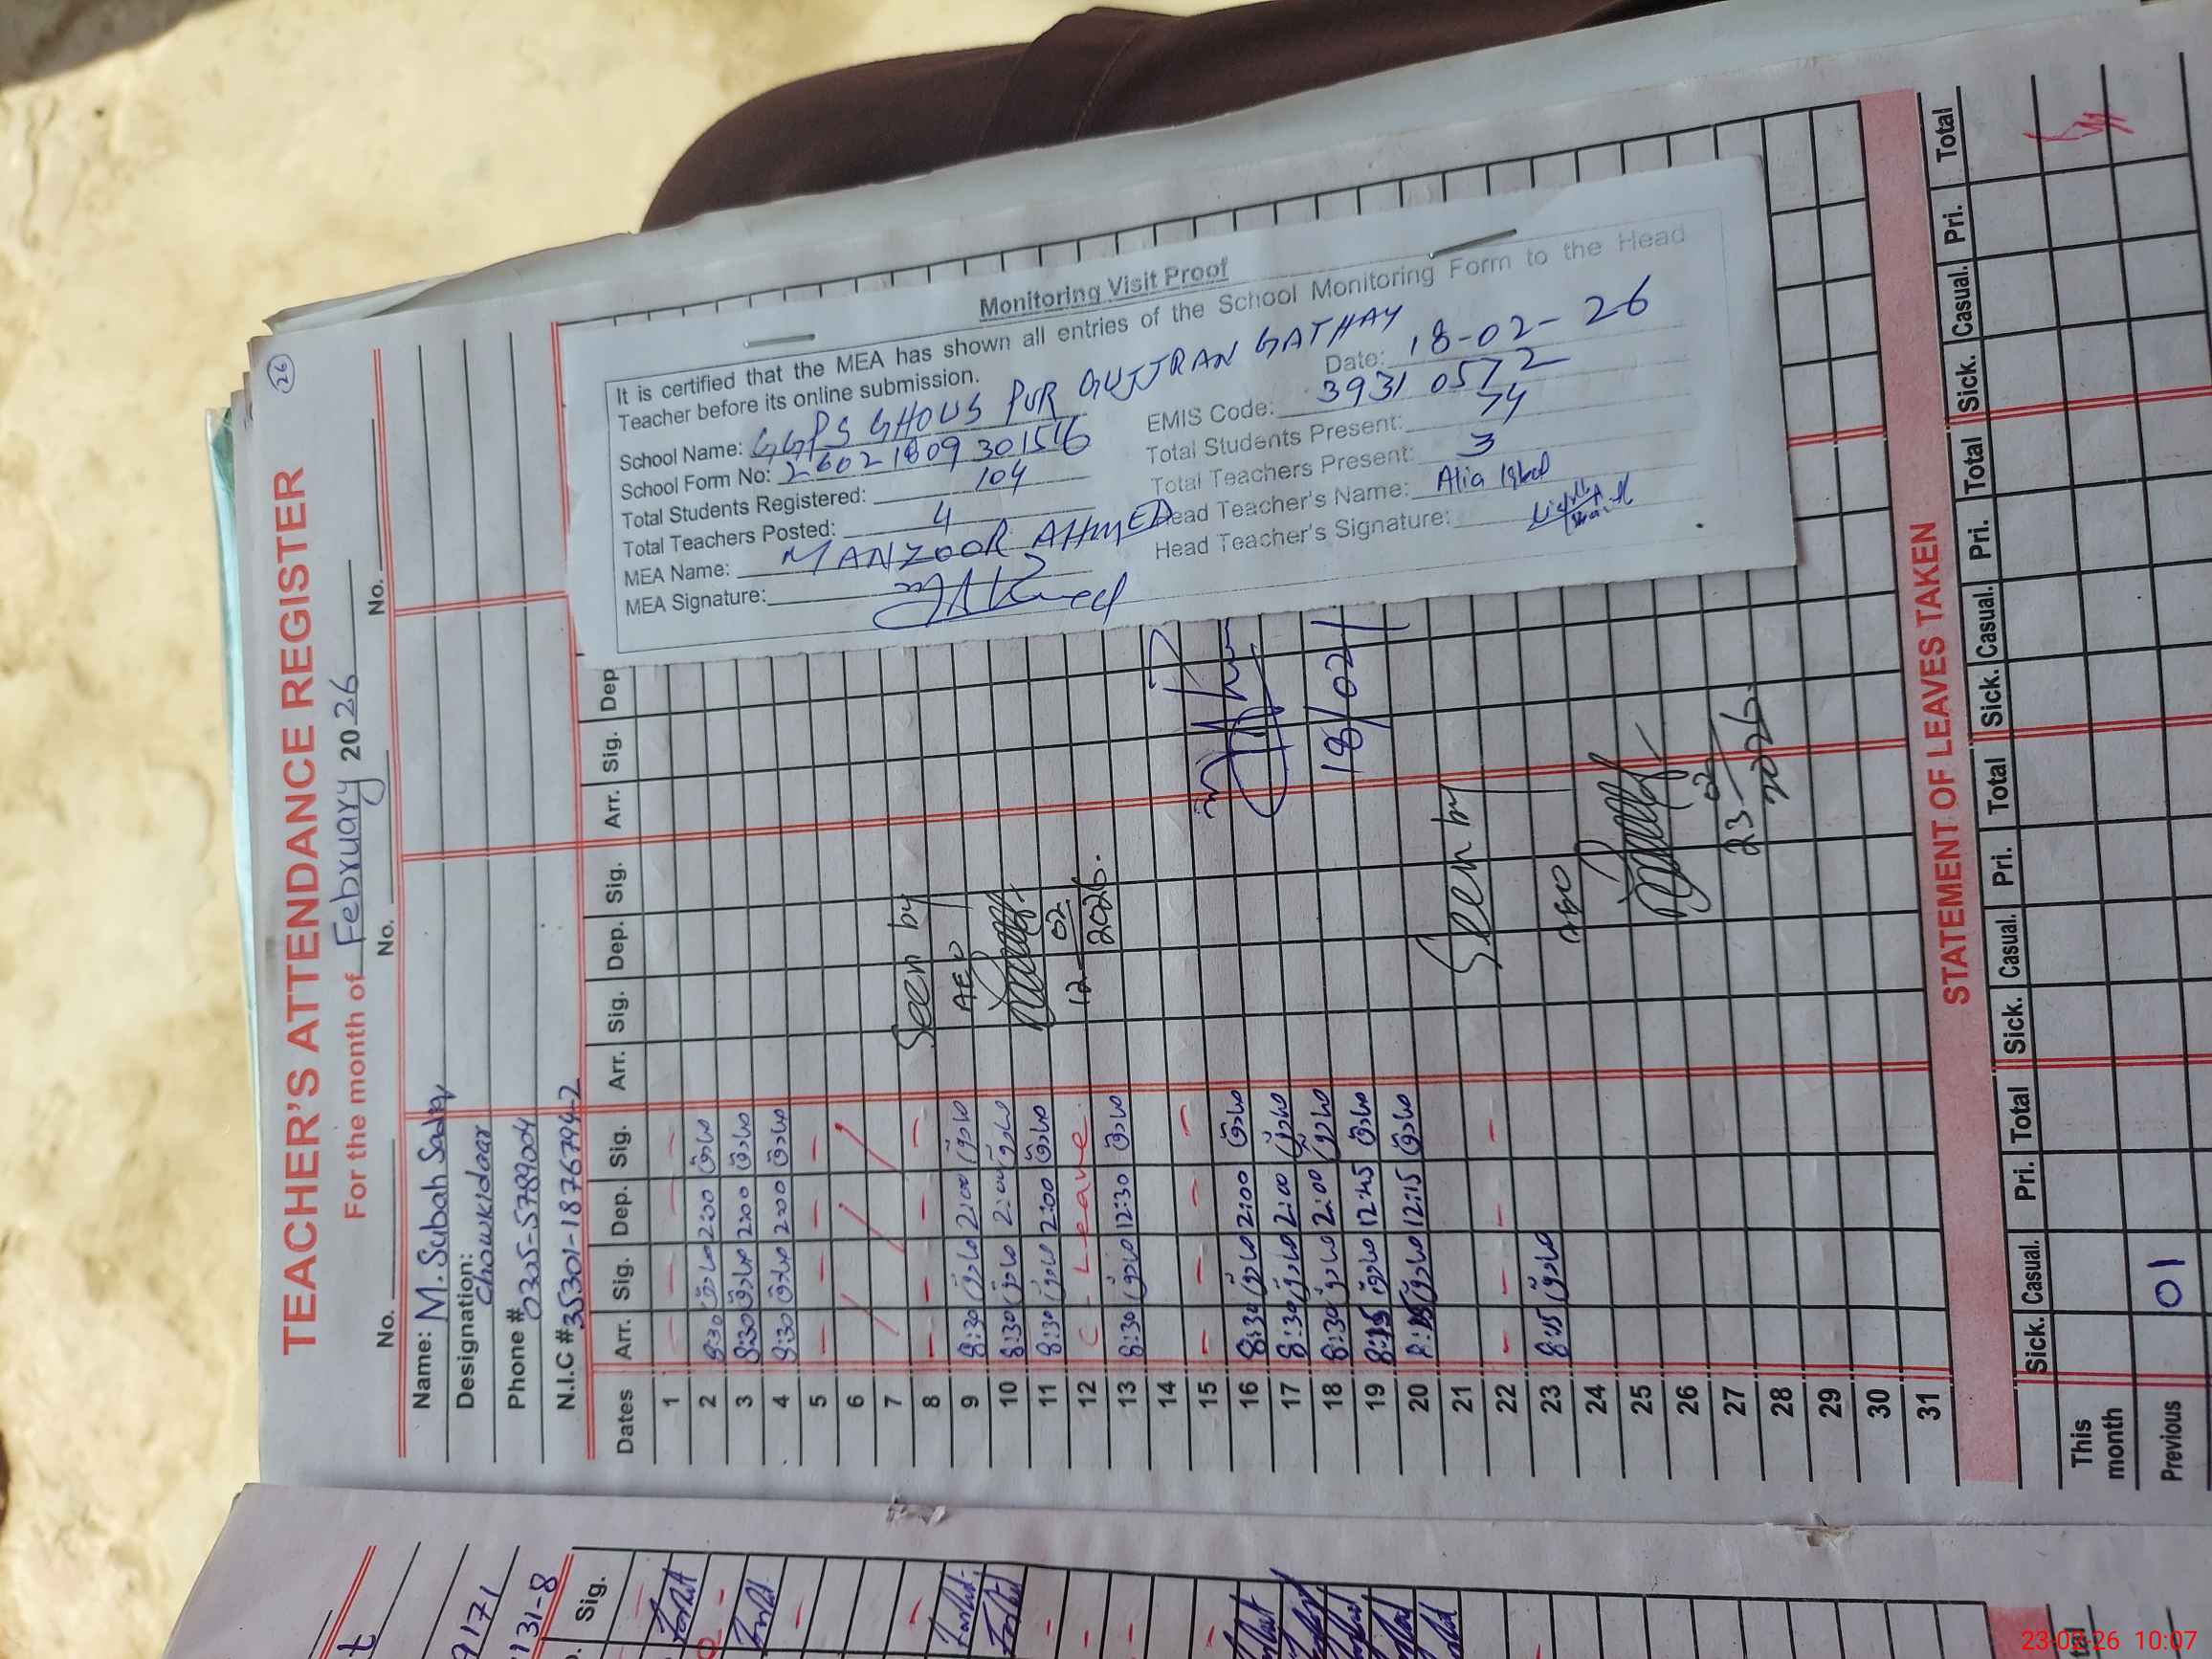 26
TEACHER'S ATTENDANCE REGISTER
For the month of February 2026
No. No. No.
Name: M. Subah Sadiq
Designation: Chowkidaar
Phone # 0305-5789004
N.I.C # 35301-1876794-2
Dates Arr. Sig. Dep. Sig. Arr. Sig. Dep. Sig. Arr. Sig. Dep
1 - - -
2 8:30 2:00
3 8:30 2:00
4 8:30 2:00
5 - - -
6
7
8 - - -
9 8:30 2:00
10 8:30 2:00
11 8:30 2:00
12 C - Leave
13 8:30 12:30
14
15 - - -
16 8:30 2:00
17 8:30 2:00
18 8:30 2:00
19 8:15 12:45
20 8:15 12:15
21
22 - - -
23 8:15
24
25
26
27
28
29
30
31
Seen by
AEO
12-02
2026.
18/02/
Seen by
AEO
23-02
2026.
Monitoring Visit Proof
It is certified that the MEA has shown all entries of the School Monitoring Form to the Head
Teacher before its online submission.
Date: 18-02-26
School Name: GGPS GHOUS PUR GUJJRAN GATHAY
EMIS Code: 39310572
School Form No: 26021809301516
Total Students Present: 74
Total Students Registered: 104
Total Teachers Present: 3
Total Teachers Posted: 4
Head Teacher's Name: Alia Iqbal
MEA Name: MANZOOR AHMED
Head Teacher's Signature:
MEA Signature:
STATEMENT OF LEAVES TAKEN
Sick. Casual. Pri. Total Sick. Casual. Pri. Total Sick. Casual. Pri. Total Sick. Casual. Pri. Total
This month
Previous 01
9171
131-8
Sig.
23-02-26 10:07